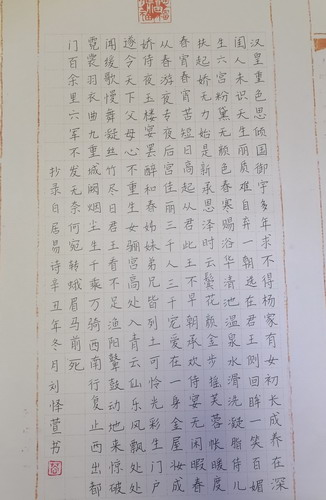 汉皇重色思倾国御宇多年求不得杨家有女初长成养在深
闺人未识天生丽质难自弃一朝选在君王侧回眸一笑百媚
生六宫粉黛无颜色春寒赐浴华清池温泉水滑洗凝脂侍儿
扶起娇无力始是新承恩泽时云鬓花颜金步摇芙蓉帐暖度
春宵春宵苦短日高起从此君王不早朝承欢侍宴无闲暇春
从春游夜专夜后宫佳丽三千人三千宠爱在一身金屋妆成
娇侍夜玉楼宴罢醉和春姊妹弟兄皆列土可怜光彩生门户
遂令天下父母心不重生女骊宫高处入青云仙乐风飘处处
闻缓歌慢舞凝丝竹尽日君王看不足渔阳鼙鼓动地来惊破
霓裳羽衣曲九重城阙烟尘生千乘万骑西南行复止西出都
门百余里六军不发无奈何宛转蛾眉马前死
抄录白居易诗辛丑年冬月刘怿萱书